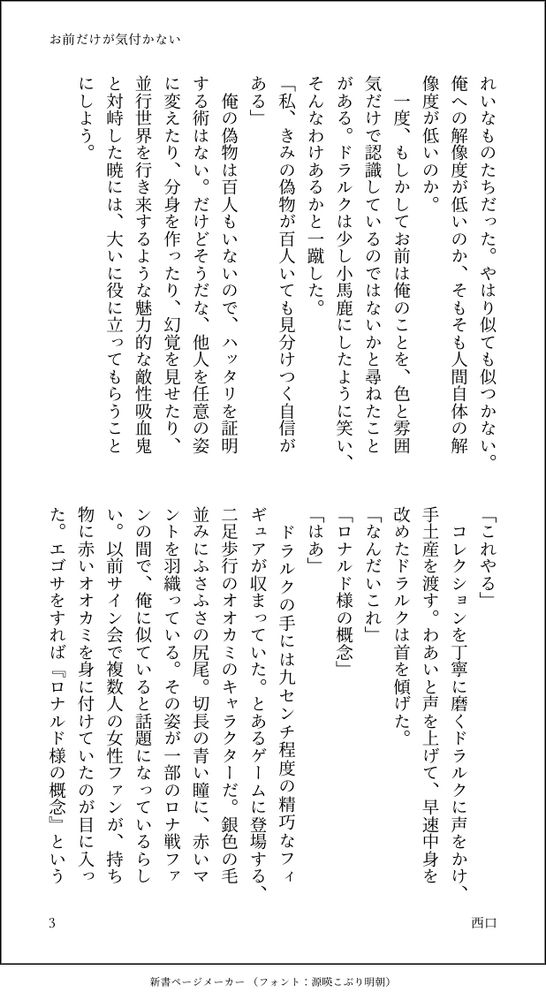 お前だけが気付かない
れいなものたちだった。やはり似ても似つかない。
俺への解像度が低いのか、そもそも人間自体の解
像度が低いのか。
一度、もしかしてお前は俺のことを、色と雰囲
気だけで認識しているのではないかと尋ねたこと
がある。ドラルクは少し小馬鹿にしたように笑い、
そんなわけあるかと一蹴した。
「私、きみの偽物が百人いても見分けつく自信が
ある」
俺の偽物は百人もいないので、ハッタリを証明
する術はない。だけどそうだな、他人を任意の姿
に変えたり、分身を作ったり、幻覚を見せたり、
並行世界を行き来するような魅力的な敵性吸血鬼
と対峙した暁には、大いに役に立ってもらうこと
にしよう。
「これやる」
コレクションを丁寧に磨くドラルクに声をかけ、
手土産を渡す。わあいと声を上げて、早速中身を
改めたドラルクは首を傾げた。
「なんだいこれ」
「ロナルド様の概念」
「はあ」
ドラルクの手には九センチ程度の精巧なフィ
ギュアが収まっていた。とあるゲームに登場する、
二足歩行のオオカミのキャラクターだ。銀色の毛
並みにふさふさの尻尾。切長の青い瞳に、赤いマ
ントを羽織っている。その姿が一部のロナ戦ファ
ンの間で、俺に似ていると話題になっているらし
い。以前サイン会で複数人の女性ファンが、持ち
物に赤いオオカミを身に付けていたのが目に入っ
た。エゴサをすれば『ロナルド様の概念』という
3
西口
新書ページメーカー（フォント：源暎こぶり明朝）